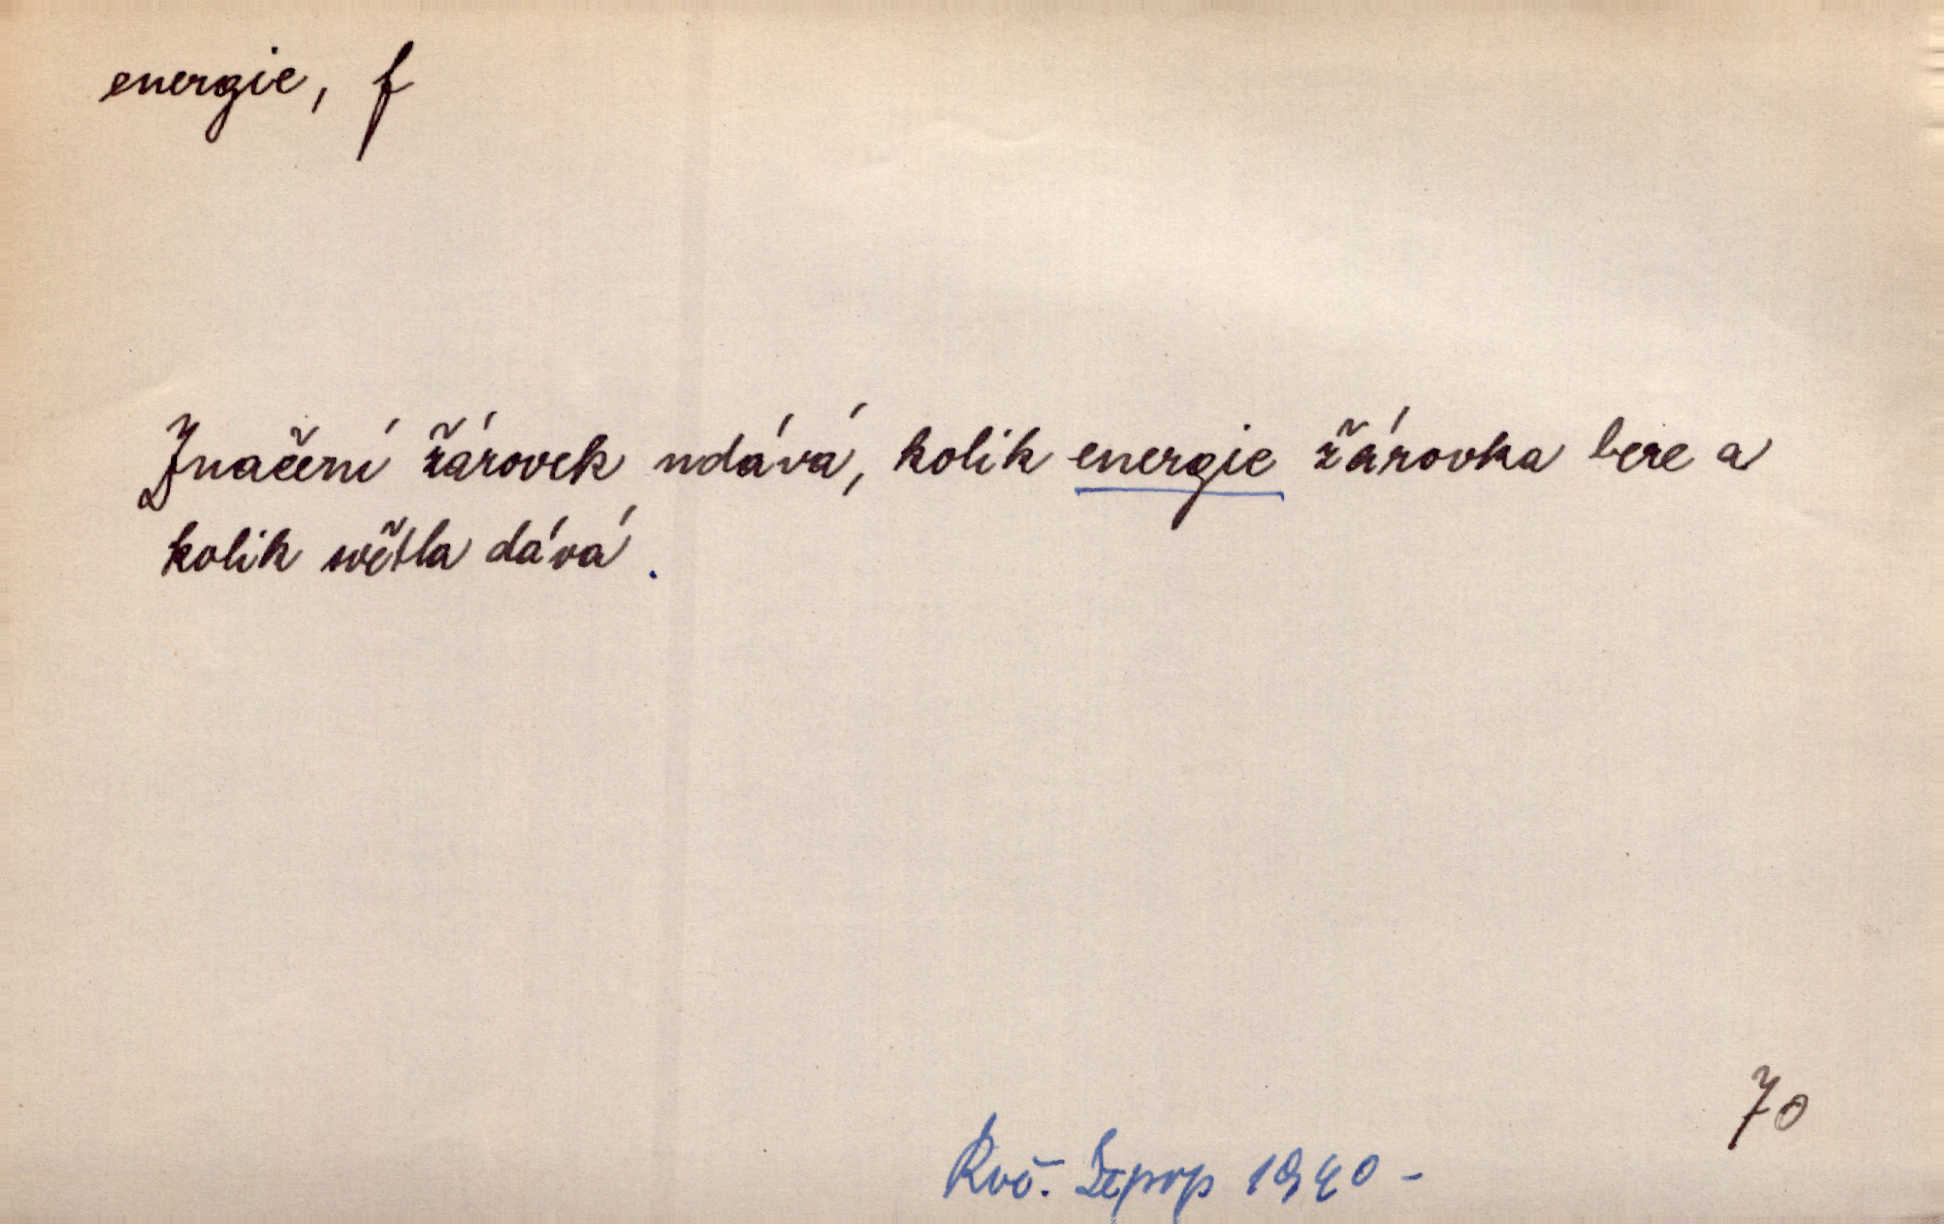 energie, f
Značení žárovek udává, kolik energie žárovka bere a
kolik světla dává.
70
1940 -